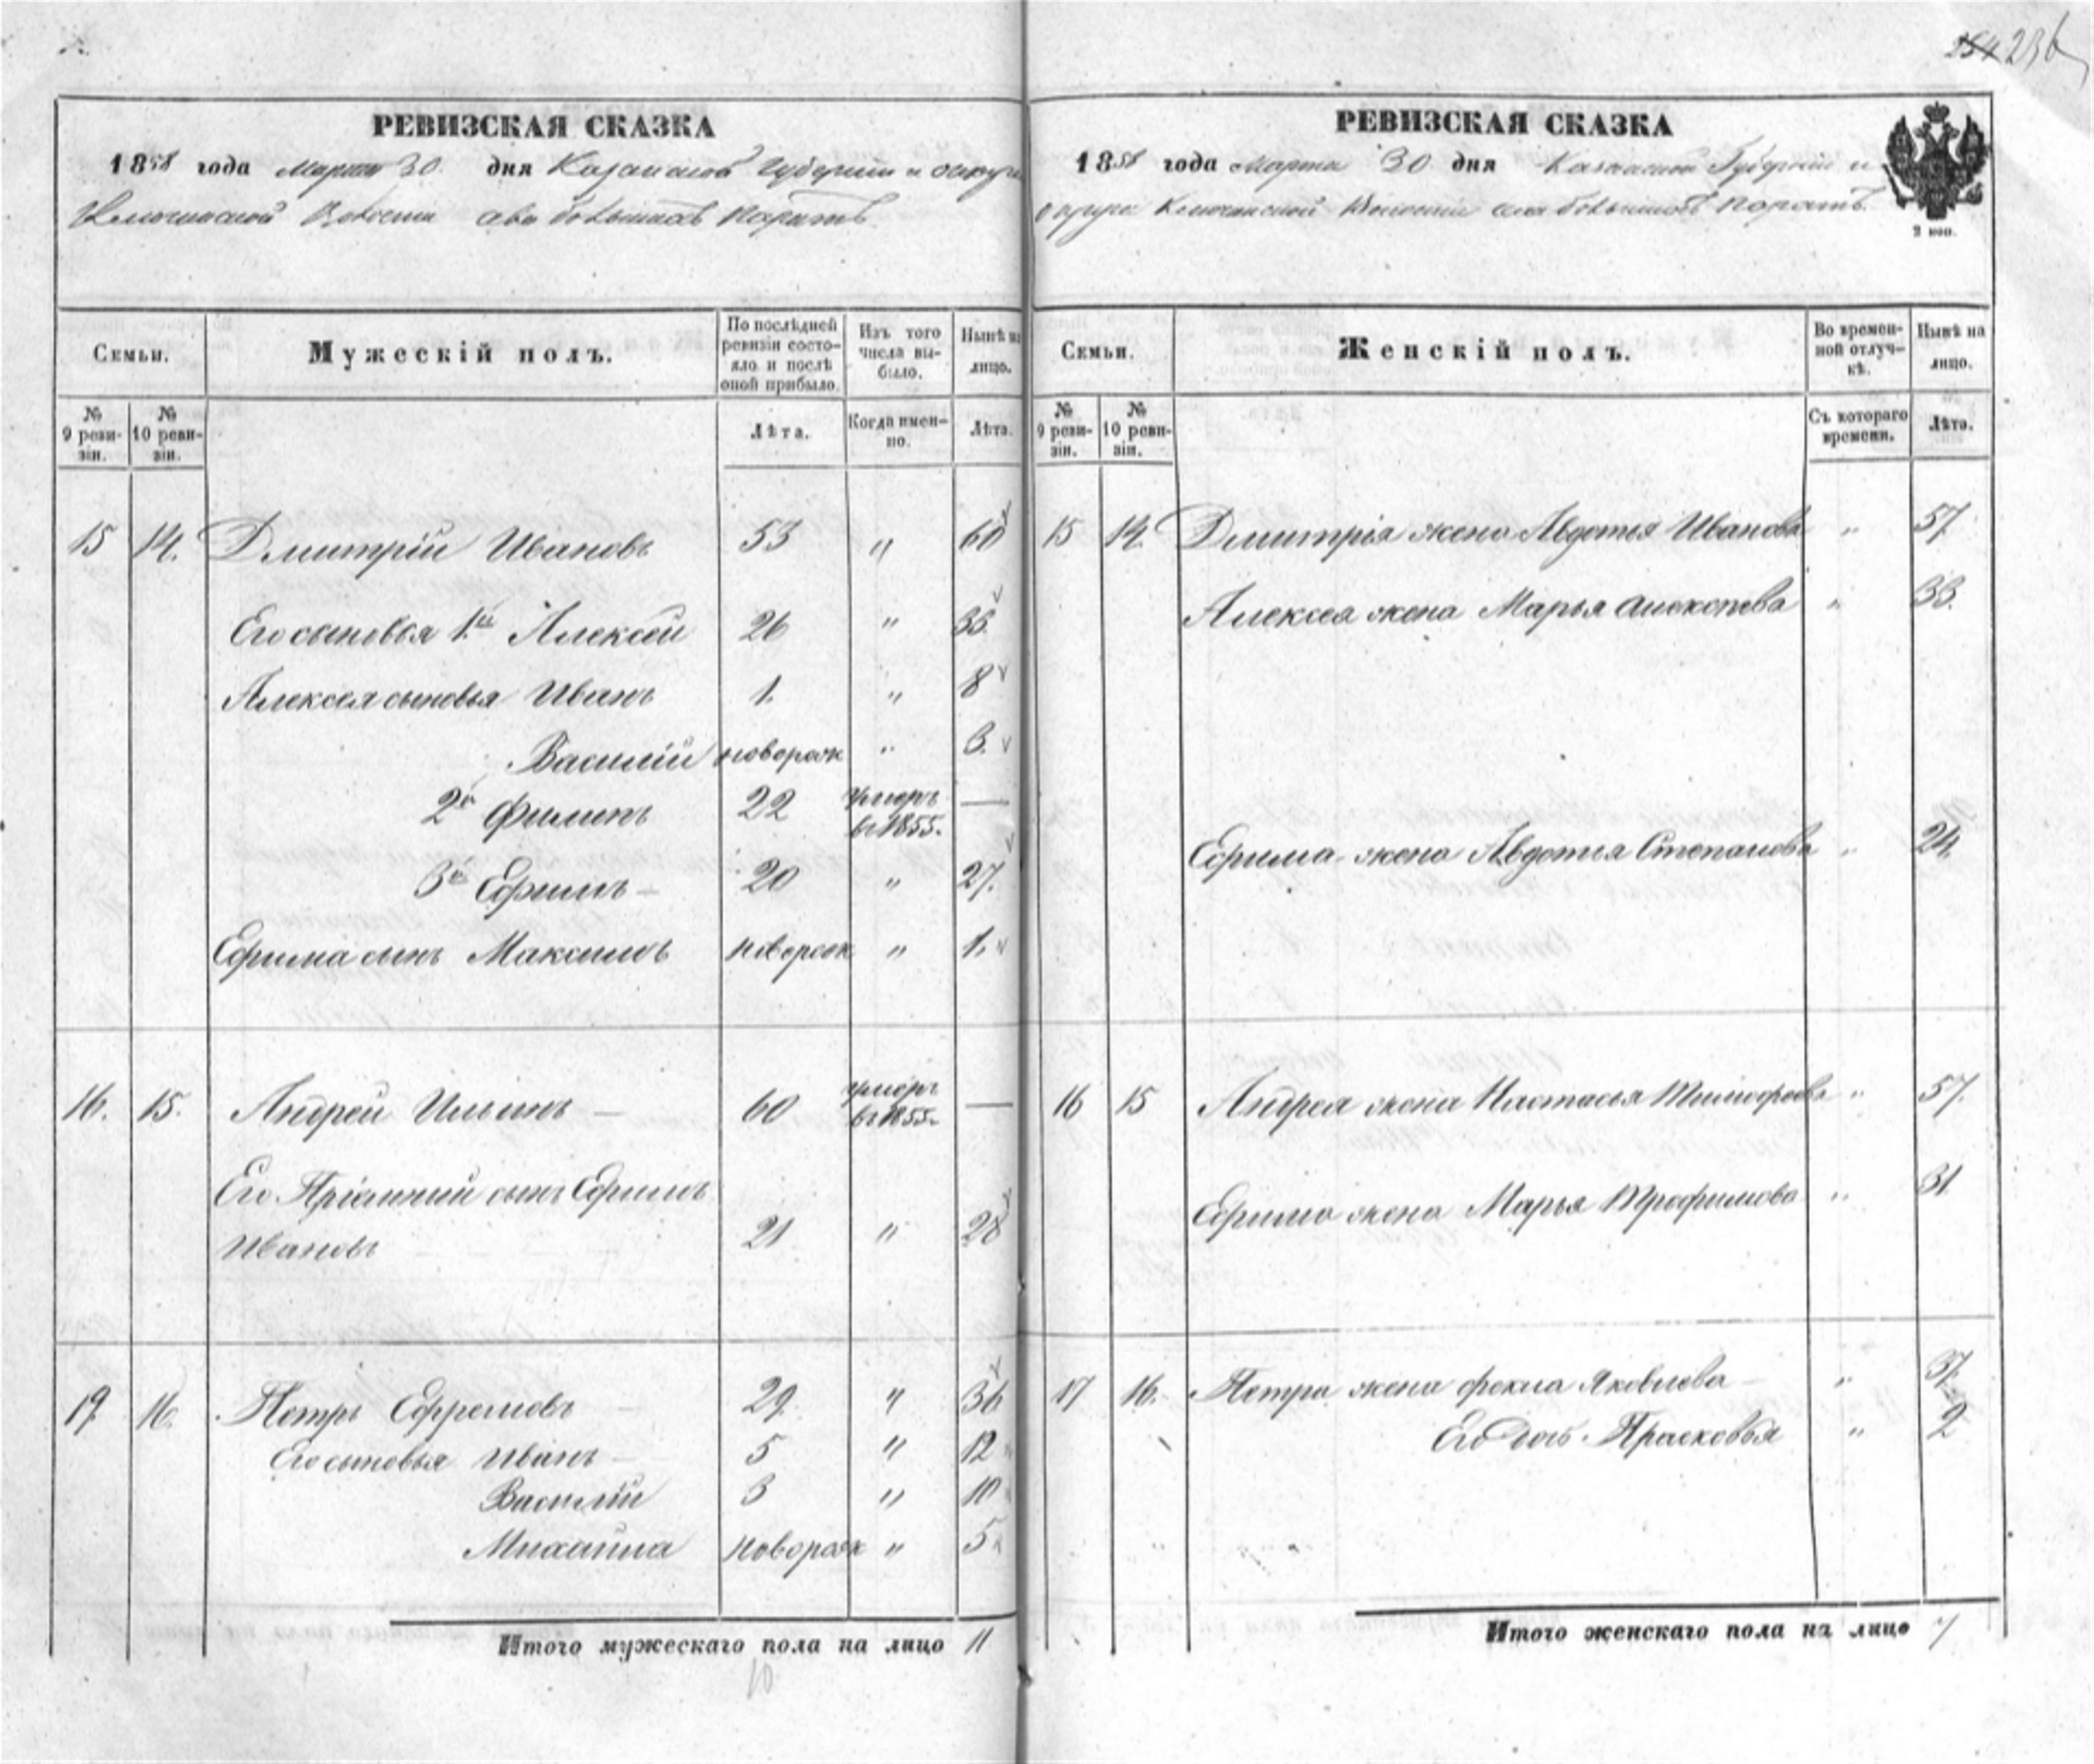 254 236
РЕВИЗСКАЯ СКАЗКА
1858 года Марта 30 дня Казанской Губернии и округи
Ключинской Волости села большихъ Паратъ
Семьи.
Мужескій полъ.
По послѣдней ревизіи состояло и послѣ оной прибыло.
Изъ того числа выбыло.
Нынѣ на лицо.
№ 9 ревизіи.
№ 10 ревизіи.
Лѣта.
Когда именно.
Лѣта.
15 14. Дмитрій Ивановъ 53 " 60
Его сыновья 1й Алексей 26 " 35
Алексея сыновья Иванъ 1. " 8
Василій новорож " 3.
2й Филипъ 22 умеръ въ 1855. —
3й Ефимъ 20 " 27.
Ефима сынъ Максимъ новорож " 1.
16. 15. Андрей Ильинъ 60 умеръ въ 1855. —
Его Пріемний сынъ Ефимъ
Ивановъ 21 " 28
17. 16. Петръ Ефремовъ 29. " 36
Его сыновья Иванъ 5 " 12
Василій 3 " 10
Михайла новорож " 5
Итого мужескаго пола на лицо 11
10
РЕВИЗСКАЯ СКАЗКА
1858 года Марта 30 дня Казанской Губерніи и
округи Ключинской Волости села большихъ Паратъ.
2 коп.
Семьи.
Женскій полъ.
Во временной отлучкѣ.
Нынѣ на лицо.
№ 9 ревизіи.
№ 10 ревизіи.
Съ котораго времени.
Лѣта.
15 14. Дмитрія жена Авдотья Иванова " 57
Алексея жена Марья Алексеева " 33.
Ефима жена Авдотья Степанова " 24.
16 15 Андрея жена Настасья Тимофеева " 57.
Ефима жена Марья Трофимова " 31.
17 16. Петра жена Фекла Яковлева " 37.
Его дочь Прасковья " 2
Итого женскаго пола на лицо 7